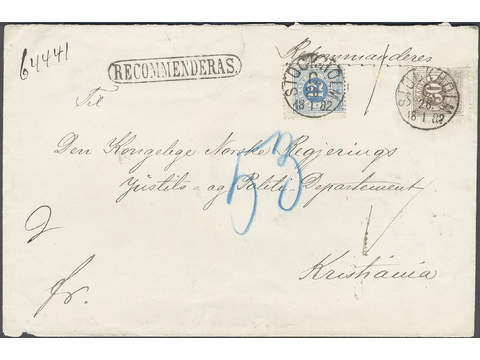 64441
RECOMMENDERAS.
Recommanderes
STOCKHOLM
C
28
18 1 82
STOCKHOLM
28
18 1 82
Til
Den Kongelige Norske Regjerings
Justits- og Politi-Departement
53
Kristiania
fr.